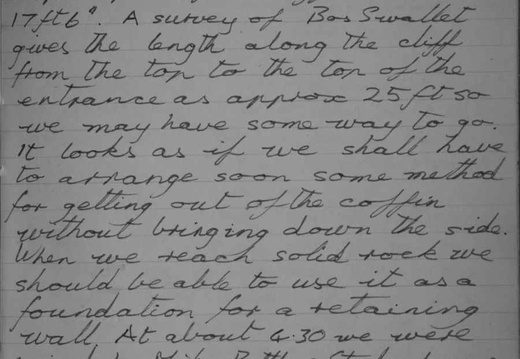 17ft6". A survey of Bos Swallet
gives the length along the cliff
from the top to the top of the
entrance as approx 25ft so
we may have some way to go.
It looks as if we shall have
to arrange soon some method
for getting out of the coffin
without bringing down the side.
When we reach solid rock we
should be able to use it as a
foundation for a retaining
wall. At about 4.30 we were